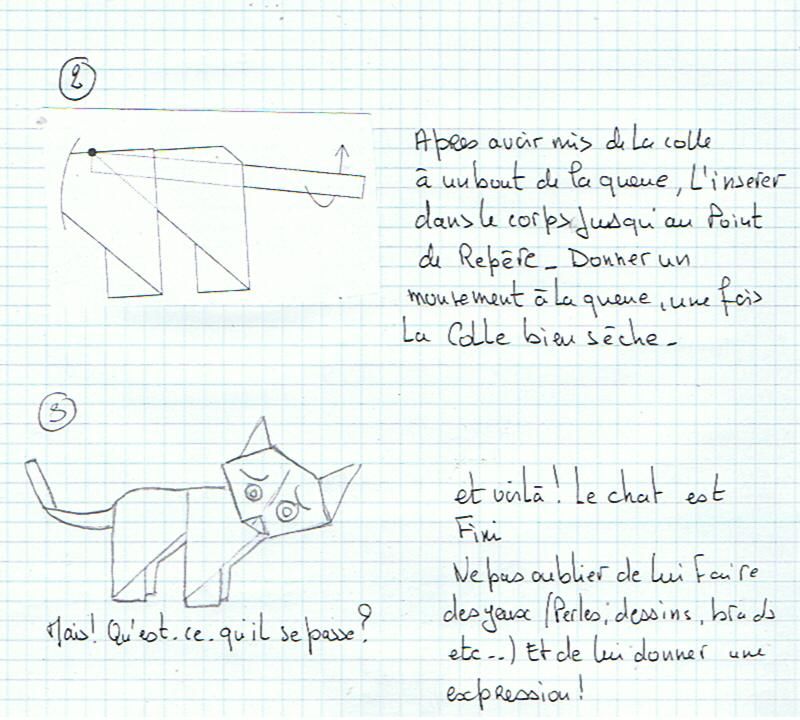 2
Apres avoir mis de la colle
à un bout de la queue, L'inserer
dans le corps jusqu'au Point
de Repère_ Donner un
mouvement à la queue, une fois
La Colle bien sèche_
3
et voilà! Le chat est
Fini
Ne pas oublier de lui faire
des yeux (Perles, dessins, brads
etc...) Et de lui donner une
expression!
Mais! Qu'est-ce-qu'il se passe?